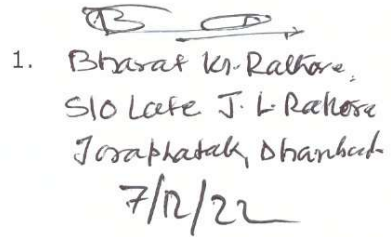 1. Bharat Kr. Rathore,
S/O Late J. L. Rathore
Joraphatak, Dhanbad
7/12/22